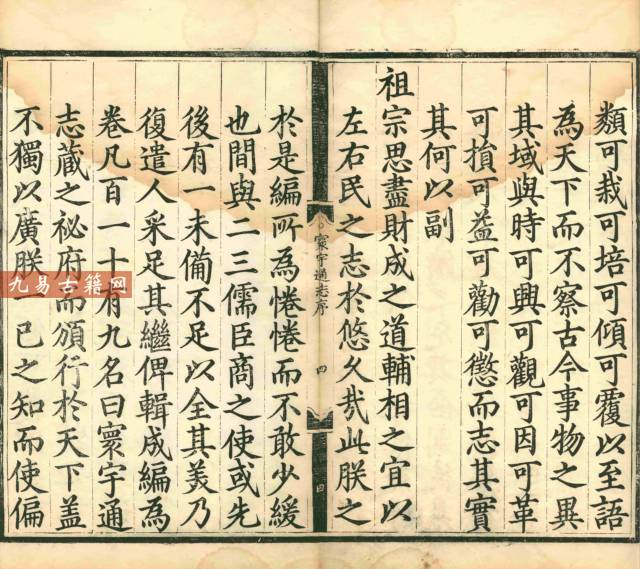 類可栽可培可傾可覆以至語
為天下而不察古今事物之異
其域與時可興可觀可因可革
可損可益可勸可懲而志其實
其何以副
祖宗思盡財成之道輔相之宜以
左右民之志於悠久㢤此朕之
寰宇通志序
四
四
於是編所為惓惓而不敢少緩
也間與二三儒臣商之使或先
後有一未備不足以全其美乃
復遣人采足其繼俾輯成編為
卷凡百一十有九名曰寰宇通
志藏之祕府而頒行於天下盖
不獨以廣朕一己之知而使偏
九易古籍网